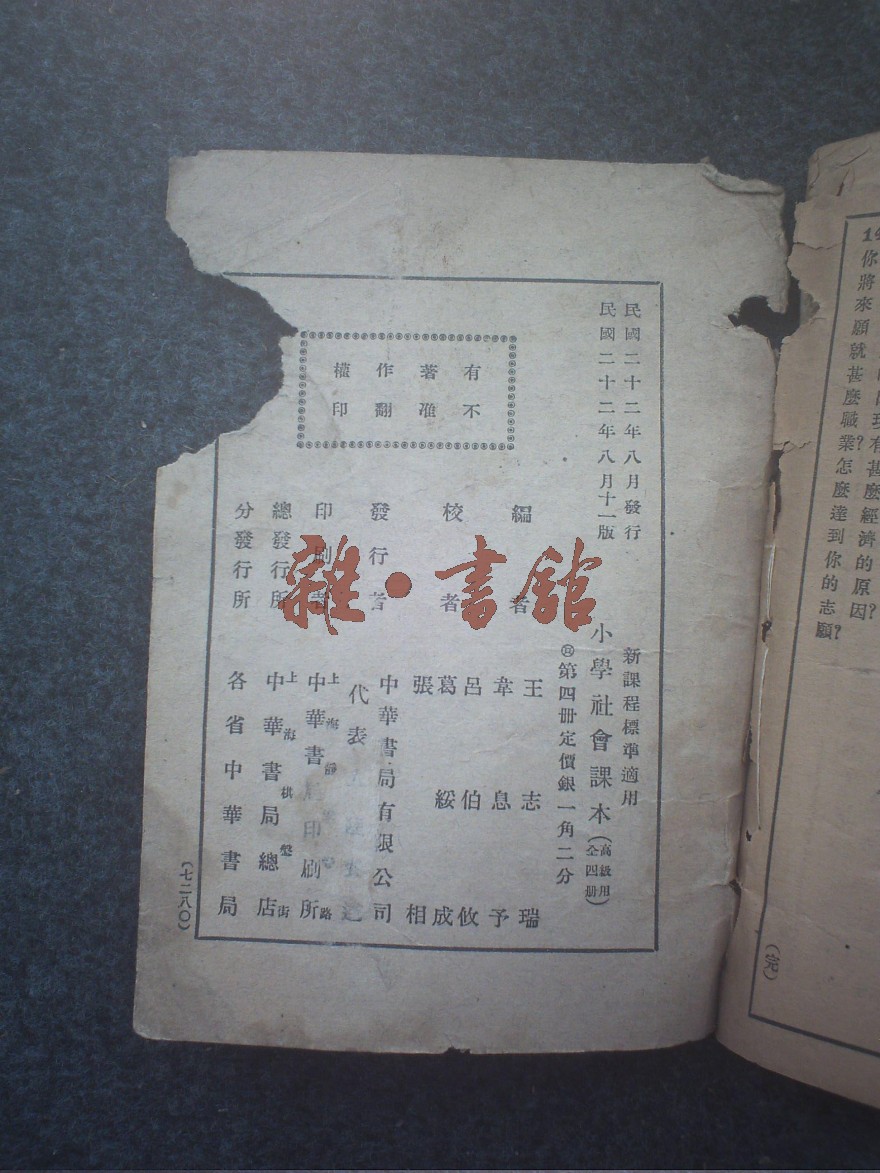 民國二十二年八月發行
民國二十二年八月十一版
有著作權
不准翻印
新課程標準適用
小學社會課本（高級用全四冊）
第四冊定價銀一角二分
編者
王志瑞
韋息予
校者
呂伯攸
葛綏成
張相
發行者
中華書局有限公司
代表
印刷者
上海靜路
中華書局印刷所
總發行所
上海棋盤街
中華書局總店
分發行所
各省中華書局
（七二八〇）
雜·書館
有甚麼經濟的原因？
你將來願就甚麼職業？怎麼達到你的志願？
（完）